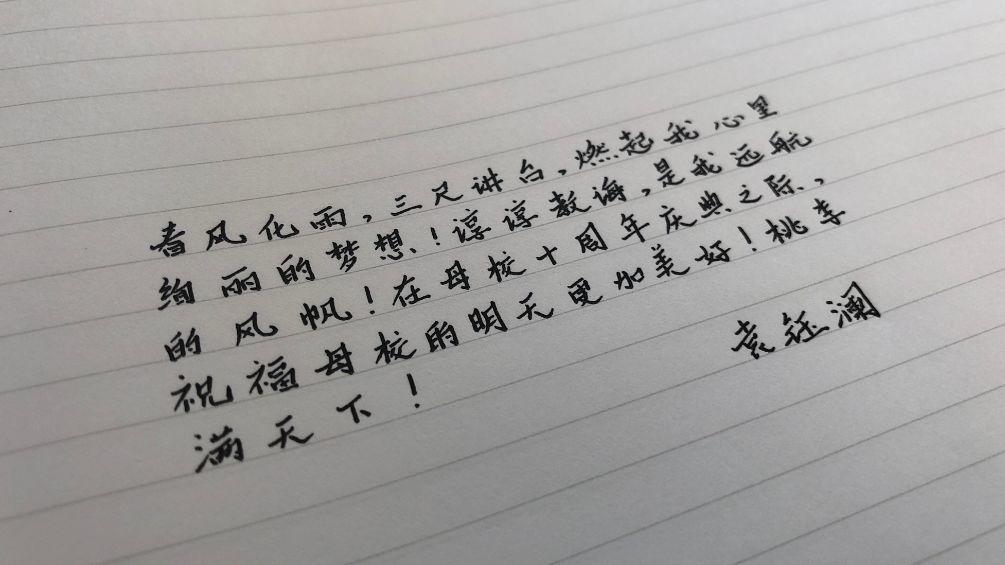 春风化雨,三尺讲台,燃起我心里
绚丽的梦想!谆谆教诲,是我远航
的风帆!在母校十周年庆典之际,
祝福母校的明天更加美好!桃李
满天下!
袁钰澜